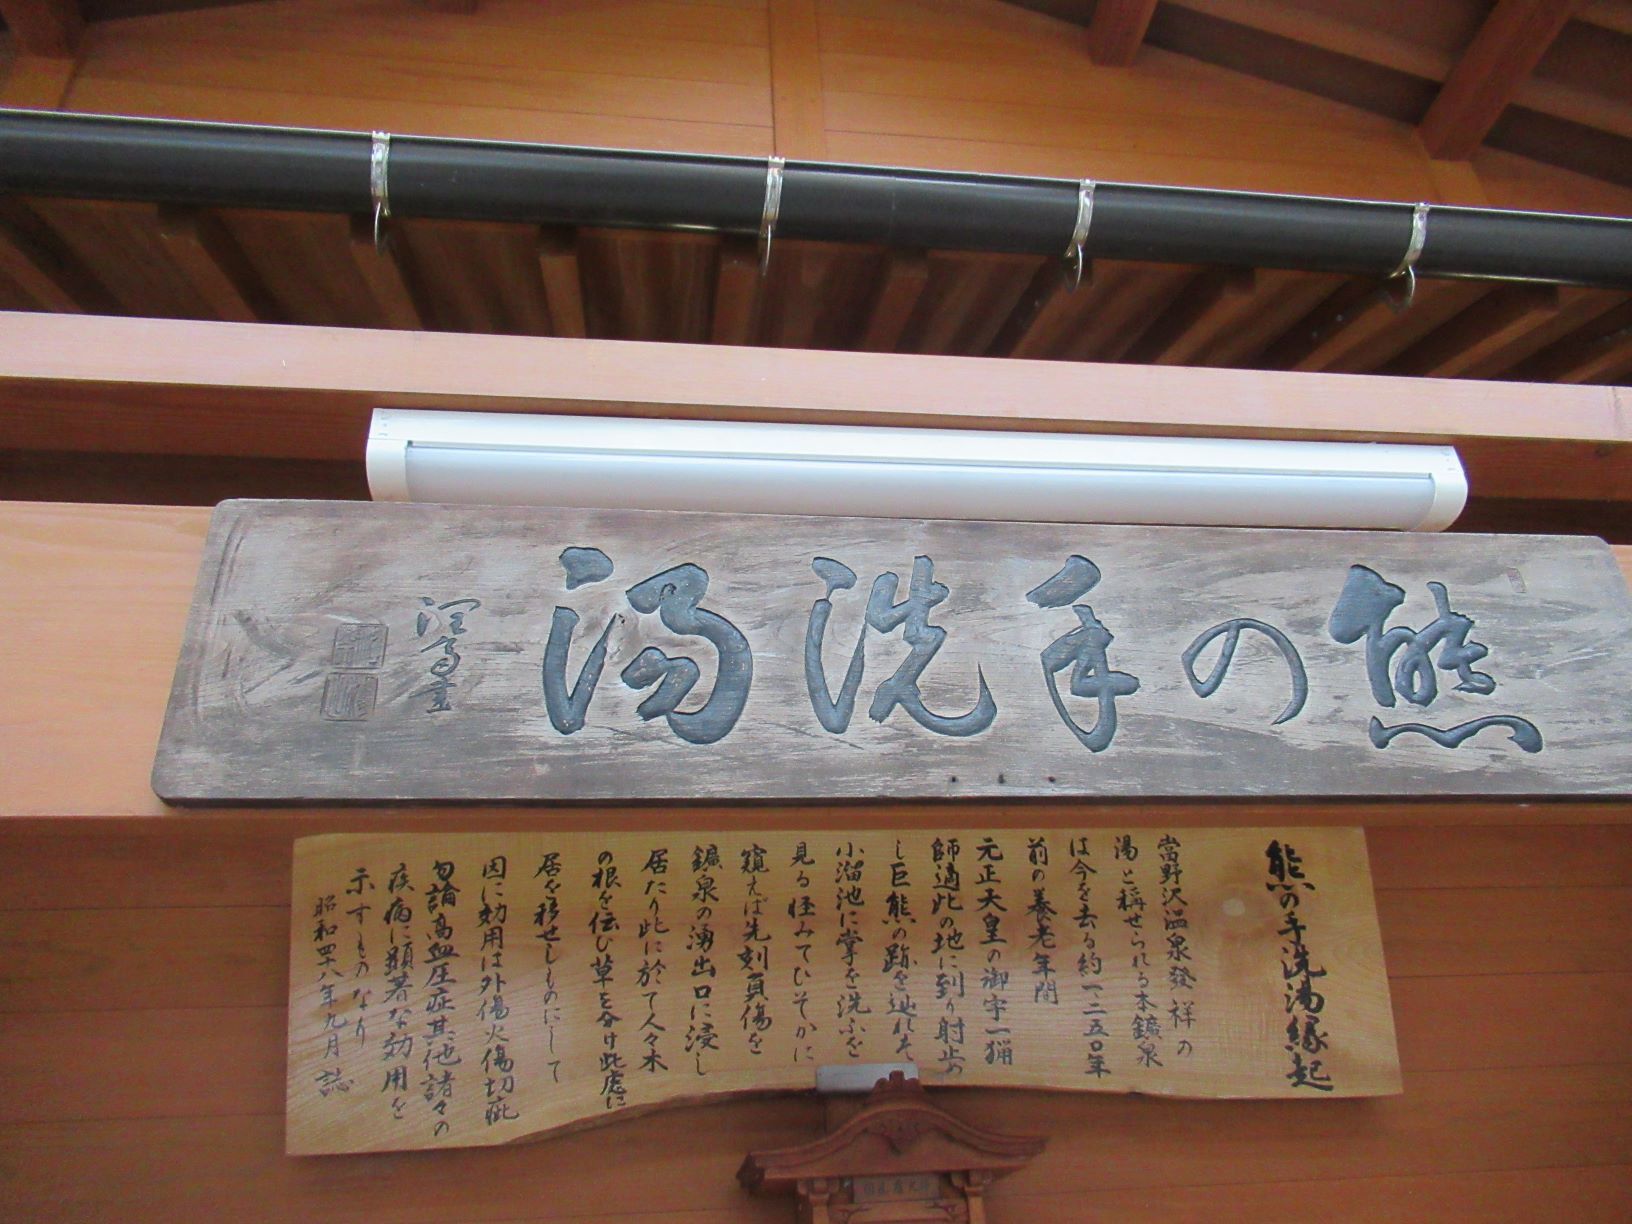 熊の手洗湯
熊の手洗湯縁起
當野沢温泉發祥の
湯と稱せられる本鑛泉
は今を去る約一、二五〇年
前の養老年間
元正天皇の御宇一猟
師適此の地に到り射止め
し巨熊の跡を辿れば
小溜池に掌を洗ふを
見る怪みてひそかに
窺えば先刻負傷を
鑛泉の湧出口に浸し
居たり此に於て人々木
の根を伝ひ草を分け此處に
居を移せしものにして
因に効用は外傷火傷切疵
勿論高血圧症其他諸々の
疾病に顕著な効用を
示すものなり
昭和四十八年九月 誌